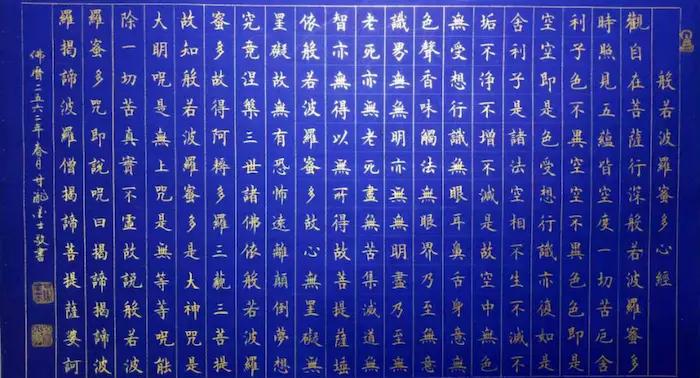 般若波羅蜜多心經
觀自在菩薩行深般若波羅蜜多
時照見五蘊皆空度一切苦厄舍
利子色不異空空不異色色即是
空空即是色受想行識亦復如是
舍利子是諸法空相不生不滅不
垢不淨不增不減是故空中無色
無受想行識無眼耳鼻舌身意無
色聲香味觸法無眼界乃至無意
識界無無明亦無無明盡乃至無
老死亦無老死盡無苦集滅道無
智亦無得以無所得故菩提薩埵
依般若波羅蜜多故心無罣礙無
罣礙故無有恐怖遠離顛倒夢想
究竟涅槃三世諸佛依般若波羅
蜜多故得阿耨多羅三藐三菩提
故知般若波羅蜜多是大神咒是
大明咒是無上咒是無等等咒能
除一切苦真實不虛故說般若波
羅蜜多咒即說咒曰揭諦揭諦波
羅揭諦波羅僧揭諦菩提薩婆訶
佛曆二五六二年春月士敬書